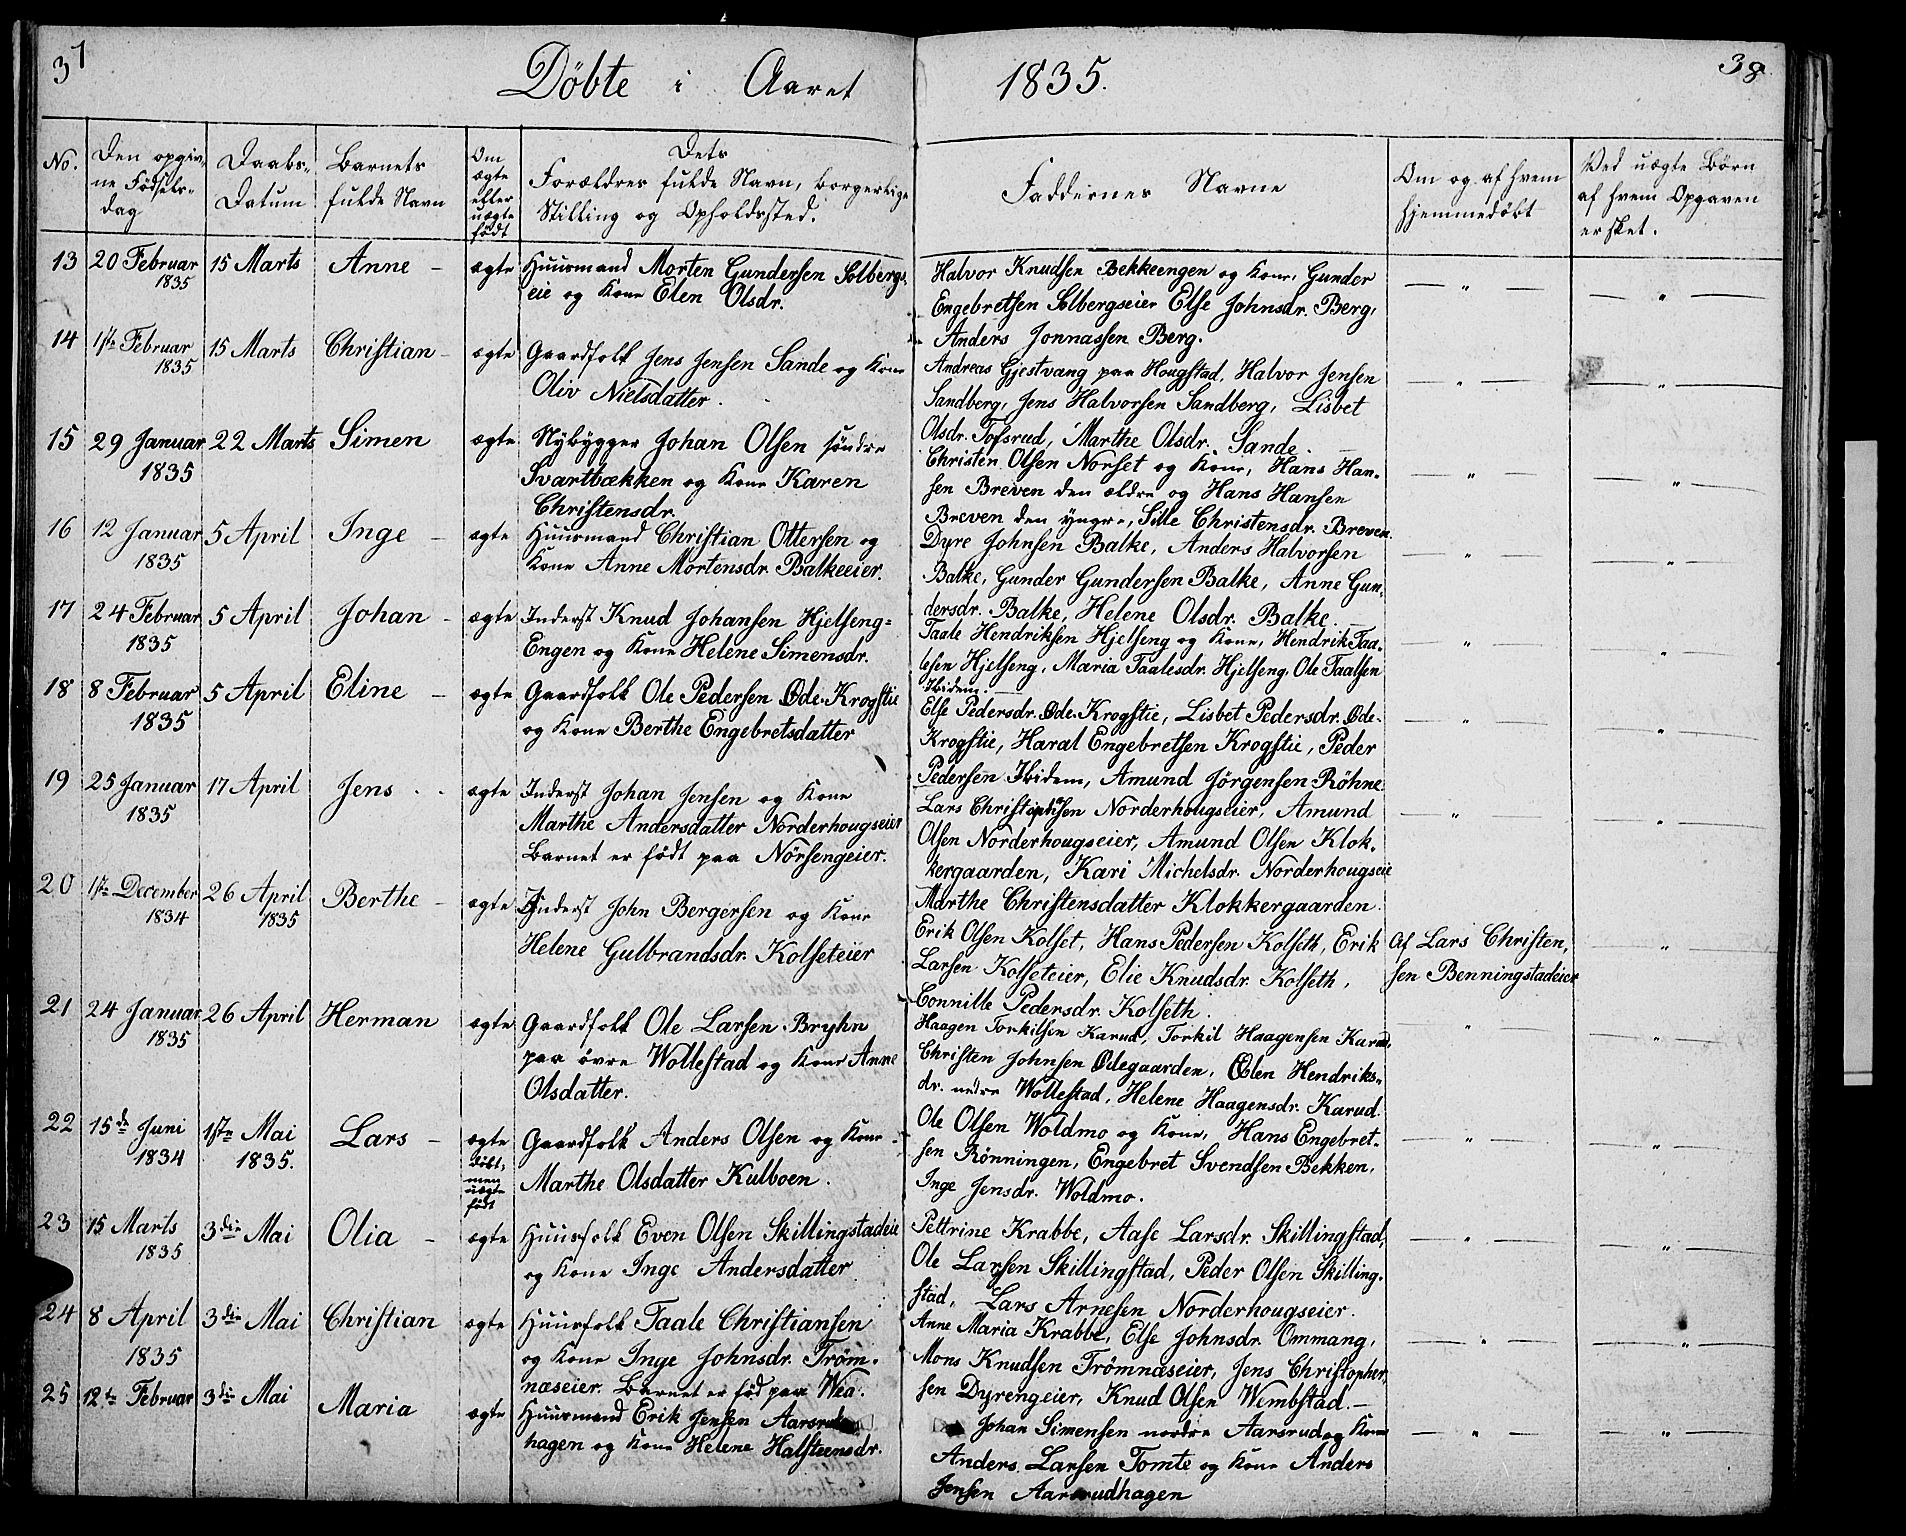 37
Döbte i Aaret 1835.
38
No. | Den opgivne Fødselsdag | Daabs-Datum | Barnets fulde Navn | Om ægte eller uægte født | Dets Forældres fulde Navn, borgerlige Stilling og Opholdssted. | Faddernes Navne | Om og af hvem hjemmedøbt | Ved uægte Börn af hvem Opgaven er sket.
13 20 Februar 1835 15 Marts Anne – ægte
Huusmand Morten Gundersen Solbergs-
eie og Kone Elen Olsdr.
Halvor Knudsen Bekkeengen og Kone, Gunder
Engebretsen Solbergseier Else Johnsdr. Berg,
Anders Jonnassen Berg.
14 1ste Februar 1835 15 Marts Christian – ægte
Gaardfolk Jens Jensen Sande og Kone
Oliv Nielsdatter.
Andreas Gjestvang paa Hougstad, Halvor Jensen
Sandberg, Jens Halvorsen Sandberg, Lisbet
Olsdr. Tofsrud, Marthe Olsdr. Sande.
15 29 Januar 1835 22 Marts Simen ægte
Nybygger Johan Olsen söndre
Svartbækken og Kone Karen
Christensdr.
Christen Olsen Norset og Kone, Hans Han-
sen Breven den ældre og Hans Hansen
Breven den yngre, Sille Christensdr. Breven
16 12 Januar 1835 5 April Inge – ægte
Huusmand Christian Ottersen og
Kone Anne Mortensdr. Balkeeier.
Dyre Johnsen Balke, Anders Halvorsen
Balke, Gunder Gundersen Balke, Anne Gun-
dersdr. Balke, Helene Olsdr. Balke.
17 24 Februar 1835 5 April Johan – ægte
Inderst Knud Johansen Hjelseng-
Engen og Kone Helene Simensdr.
Taale Hendriksen Hjelseng og Kone, Hendrik Taa-
lesen Hjelseng, Maria Taalesdr. Hjelseng, Ole Taalsen
Ibidem.
18 8 Februar 1835 5 April Eline – ægte
Gaardfolk Ole Pedersen Øde-Krogstie
og Kone Berthe Engebretsdatter
Else Pedersdr. Øde-Krogstie, Lisbet Pedersdr. Øde-
Krogstie, Haral Engebretsen Krogstie, Peder
Pedersen Ibidem, Amund Jörgensen Röhne
19 25 Januar 1835 17 April Jens ægte
Inderst Johan Jensen og Kone
Marthe Andersdatter Norderhougseier
Barnet er født paa Nörsengeier.
Lars Christiansen Norderhougseier, Amund
Olsen Norderhougseier, Amund Olsen Klok-
kergaarden, Kari Michelsdr. Norderhougseie
Marthe Christensdatter Klokkergaarden.
20 1ste December 1834 26 April 1835 Berthe – ægte
Inderst John Bergersen og Kone
Helene Gulbrandsdr. Kolseteier
Erik Olsen Kolset, Hans Pedersen Kolseth, Erik
Larsen Kolseteier, Elie Knudsdr. Kolseth,
Connille Pedersdr. Kolseth.
Af Lars Christen-
sen Benningstadeier
21 24 Januar 1835 26 April Herman ægte
Gaardfolk Ole Larsen Bryhn
paa övre Wollestad og Kone Anne
Olsdatter.
Haagen Torkilsen Karud, Torkil Haagensen Karud,
Christen Johnsen Ødegaarden, Elen Hendriks-
dr. nedre Wollestad, Helene Haagensdr. Karud.
22 15de Juni 1834 1ste Mai 1835. Lars – ægte döbt, men uægte født
Gaardfolk Anders Olsen og Kone
Marthe Olsdatter Kulboen.
Ole Olsen Woldmo og Kone, Hans Engebret-
sen Rönningen, Engebret Svendsen Bekken,
Inge Jensdr. Woldmo.
23 15 Marts 1835 3die Mai Olia – ægte
Huusfolk Even Olsen Skillingstadeie
og Kone Inge Andersdatter
Pettrine Krabbe, Aase Larsdr. Skillingstad,
Ole Larsen Skillingstad, Peder Olsen Skilling-
stad, Lars Arnesen Norderhougseier.
24 8 April 1835 3die Mai Christian ægte
Huusfolk Taale Christiansen
og Kone Inge Johnsdr. Tröm-
næseier. Barnet er fød paa Wea.
Anne Maria Krabbe, Else Johnsdr. Ommang,
Mons Knudsen Trömnæseier, Jens Christopher
sen Dyrengeier, Knud Olsen Wembstad.–
25 12te Februar 3die Mai Maria ægte
Huusmand Erik Jensen Aarsrud
hagen og Kone Helene Halsteensdr.
Johan Simensen nordre Aarsrud og Kone
Anders Larsen Tomte og Kone Anders
Jensen Aarsrudhagen